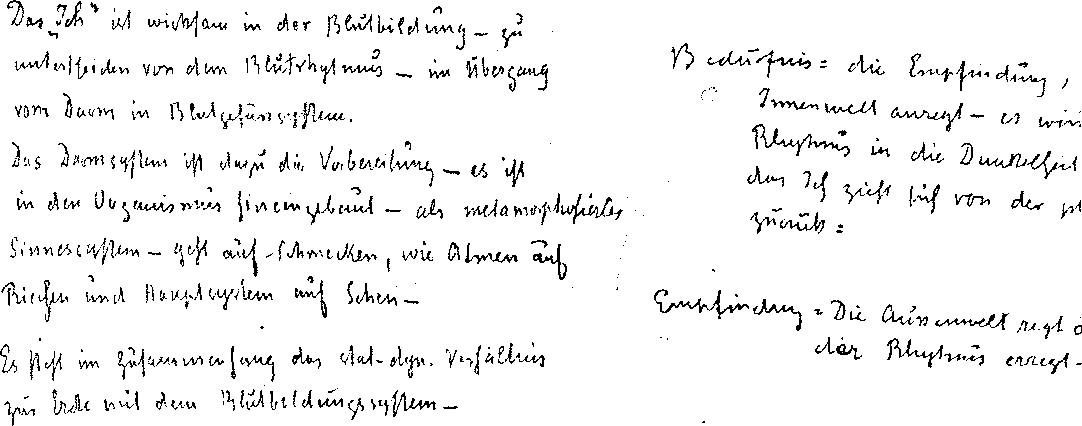 Das „Ich“ ist wirksam in der Blutbildung – zu
unterscheiden von dem Blutrhytmus – im Übergang
vom Darm in Blutgefässsystem.
Das Darmsystem ist dazu die Vorbereitung – es ist
in den Organismus hineingebaut – als metamorphosiertes
Sinnessystem – geht auf Schmecken, wie Atmen auf
Riechen und Hauptsystem auf Sehen –
Es steht im Zusammenhang das stat-dyn. Verhältnis
zur Erde mit dem Blutbildungssystem –
Bedürfnis = die Empfindung,
Innenwelt anregt – es
Rhytmus in die Dunkelheit
das Ich zieht sich von der
zurück =
Empfindung = Die Aussenwelt regt
der Rhytmus erregt –